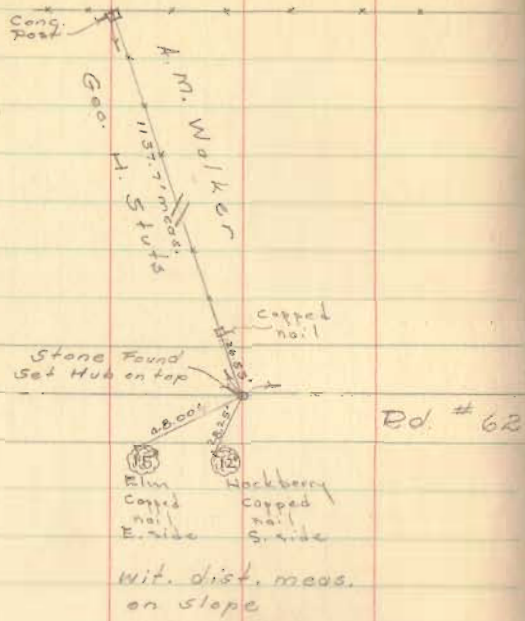 Conc.
Post
A. M. Walker
1137.7' meas.
Geo. H. Stuts
Capped
nail
26.53'
Stone Found
Set Hub on top
Rd. # 62
28.00'
28.25'
15
12
Elm
Capped
nail
E. side
Hackberry
Capped
nail
S. side
wit. dist. meas.
on slope